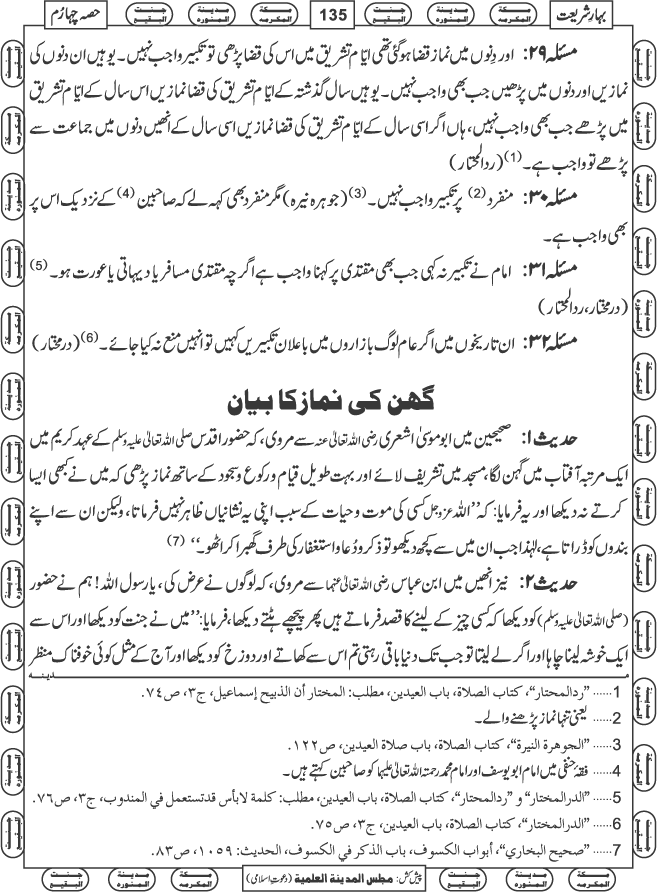 بہارِ شریعت
135
حصہ چہارم
مسئلہ ۲۹: اور دِنوں میں نماز قضا ہوگئی تھی ایّامِ تشریق میں اس کی قضا پڑھی تو تکبیر واجب نہیں۔ یوہیں ان دنوں کی
نمازیں اور دنوں میں پڑھیں جب بھی واجب نہیں۔ یوہیں سال گذشتہ کے ایّامِ تشریق کی قضا نمازیں اس سال کے ایّامِ تشریق
میں پڑھے جب بھی واجب نہیں، ہاں اگر اسی سال کے ایّامِ تشریق کی قضا نمازیں اسی سال کے انھیں دنوں میں جماعت سے
پڑھے تو واجب ہے۔ (1) (ردالمحتار)
مسئلہ ۳۰: منفرد (2) پر تکبیر واجب نہیں۔ (3) (جوہرہ نیرہ) مگر منفرد بھی کہہ لے کہ صاحبین (4) کے نزدیک اس پر
بھی واجب ہے۔
مسئلہ ۳۱: امام نے تکبیر نہ کہی جب بھی مقتدی پر کہنا واجب ہے اگرچہ مقتدی مسافر یا دیہاتی یا عورت ہو۔ (5)
(درمختار، ردالمحتار)
مسئلہ ۳۲: ان تاریخوں میں اگر عام لوگ بازاروں میں باعلان تکبیریں کہیں تو انہیں منع نہ کیا جائے۔ (6) (درمختار)
گھن کی نماز کا بیان
حدیث ۱: صحیحین میں ابوموسیٰ اشعری رضی اللہ تعالیٰ عنہ سے مروی، کہ حضور اقدس صلی اللہ تعالیٰ علیہ وسلم کے عہد کریم میں
ایک مرتبہ آفتاب میں گہن لگا، مسجد میں تشریف لائے اور بہت طویل قیام و رکوع و سجود کے ساتھ نماز پڑھی کہ میں نے کبھی ایسا
کرتے نہ دیکھا اور یہ فرمایا: کہ ’’اللہ عزوجل کسی کی موت و حیات کے سبب اپنی یہ نشانیاں ظاہر نہیں فرماتا، ولیکن ان سے اپنے
بندوں کو ڈراتا ہے، لہٰذا جب ان میں سے کچھ دیکھو تو ذکر و دُعا و استغفار کی طرف گھبرا کر اٹھو۔‘‘ (7)
حدیث ۲: نیز انھیں میں ابن عباس رضی اللہ تعالیٰ عنہما سے مروی، کہ لوگوں نے عرض کی، یا رسول اللہ! ہم نے حضور
(صلی اللہ تعالیٰ علیہ وسلم) کو دیکھا کہ کسی چیز کے لینے کا قصد فرماتے ہیں پھر پیچھے ہٹتے دیکھا، فرمایا: ’’میں نے جنت کو دیکھا اور اس سے
ایک خوشہ لینا چاہا اور اگر لے لیتا تو جب تک دنیا باقی رہتی تم اس سے کھاتے اور دوزخ کو دیکھا اور آج کے مثل کوئی خوفناک منظر
مدینہ
1...... ”ردالمحتار“، كتاب الصلاة، باب العيدين، مطلب: المختار أن الذبيح إسماعيل، ج۳، ص۷٤.
2...... یعنی تنہا نماز پڑھنے والے۔
3...... ”الجوهرة النيرة“، كتاب الصلاة، باب صلاة العيدين، ص۱۲۲.
4...... فقہ حنفی میں امام ابویوسف اور امام محمد رحمۃ اللہ تعالیٰ علیہما کو صاحبین کہتے ہیں۔
5...... ”الدرالمختار“ و ”ردالمحتار“، كتاب الصلاة، باب العيدين، مطلب: كلمة لابأس قدتستعمل في المندوب، ج۳، ص۷٦.
6...... ”الدرالمختار“، كتاب الصلاة، باب العيدين، ج۳، ص۷٥.
7...... ”صحيح البخاري“، أبواب الكسوف، باب الذكر في الكسوف، الحديث: ۱۰٥۹، ص۸۳.
پیش کش: مجلس المدينة العلمية (دعوتِ اسلامی)